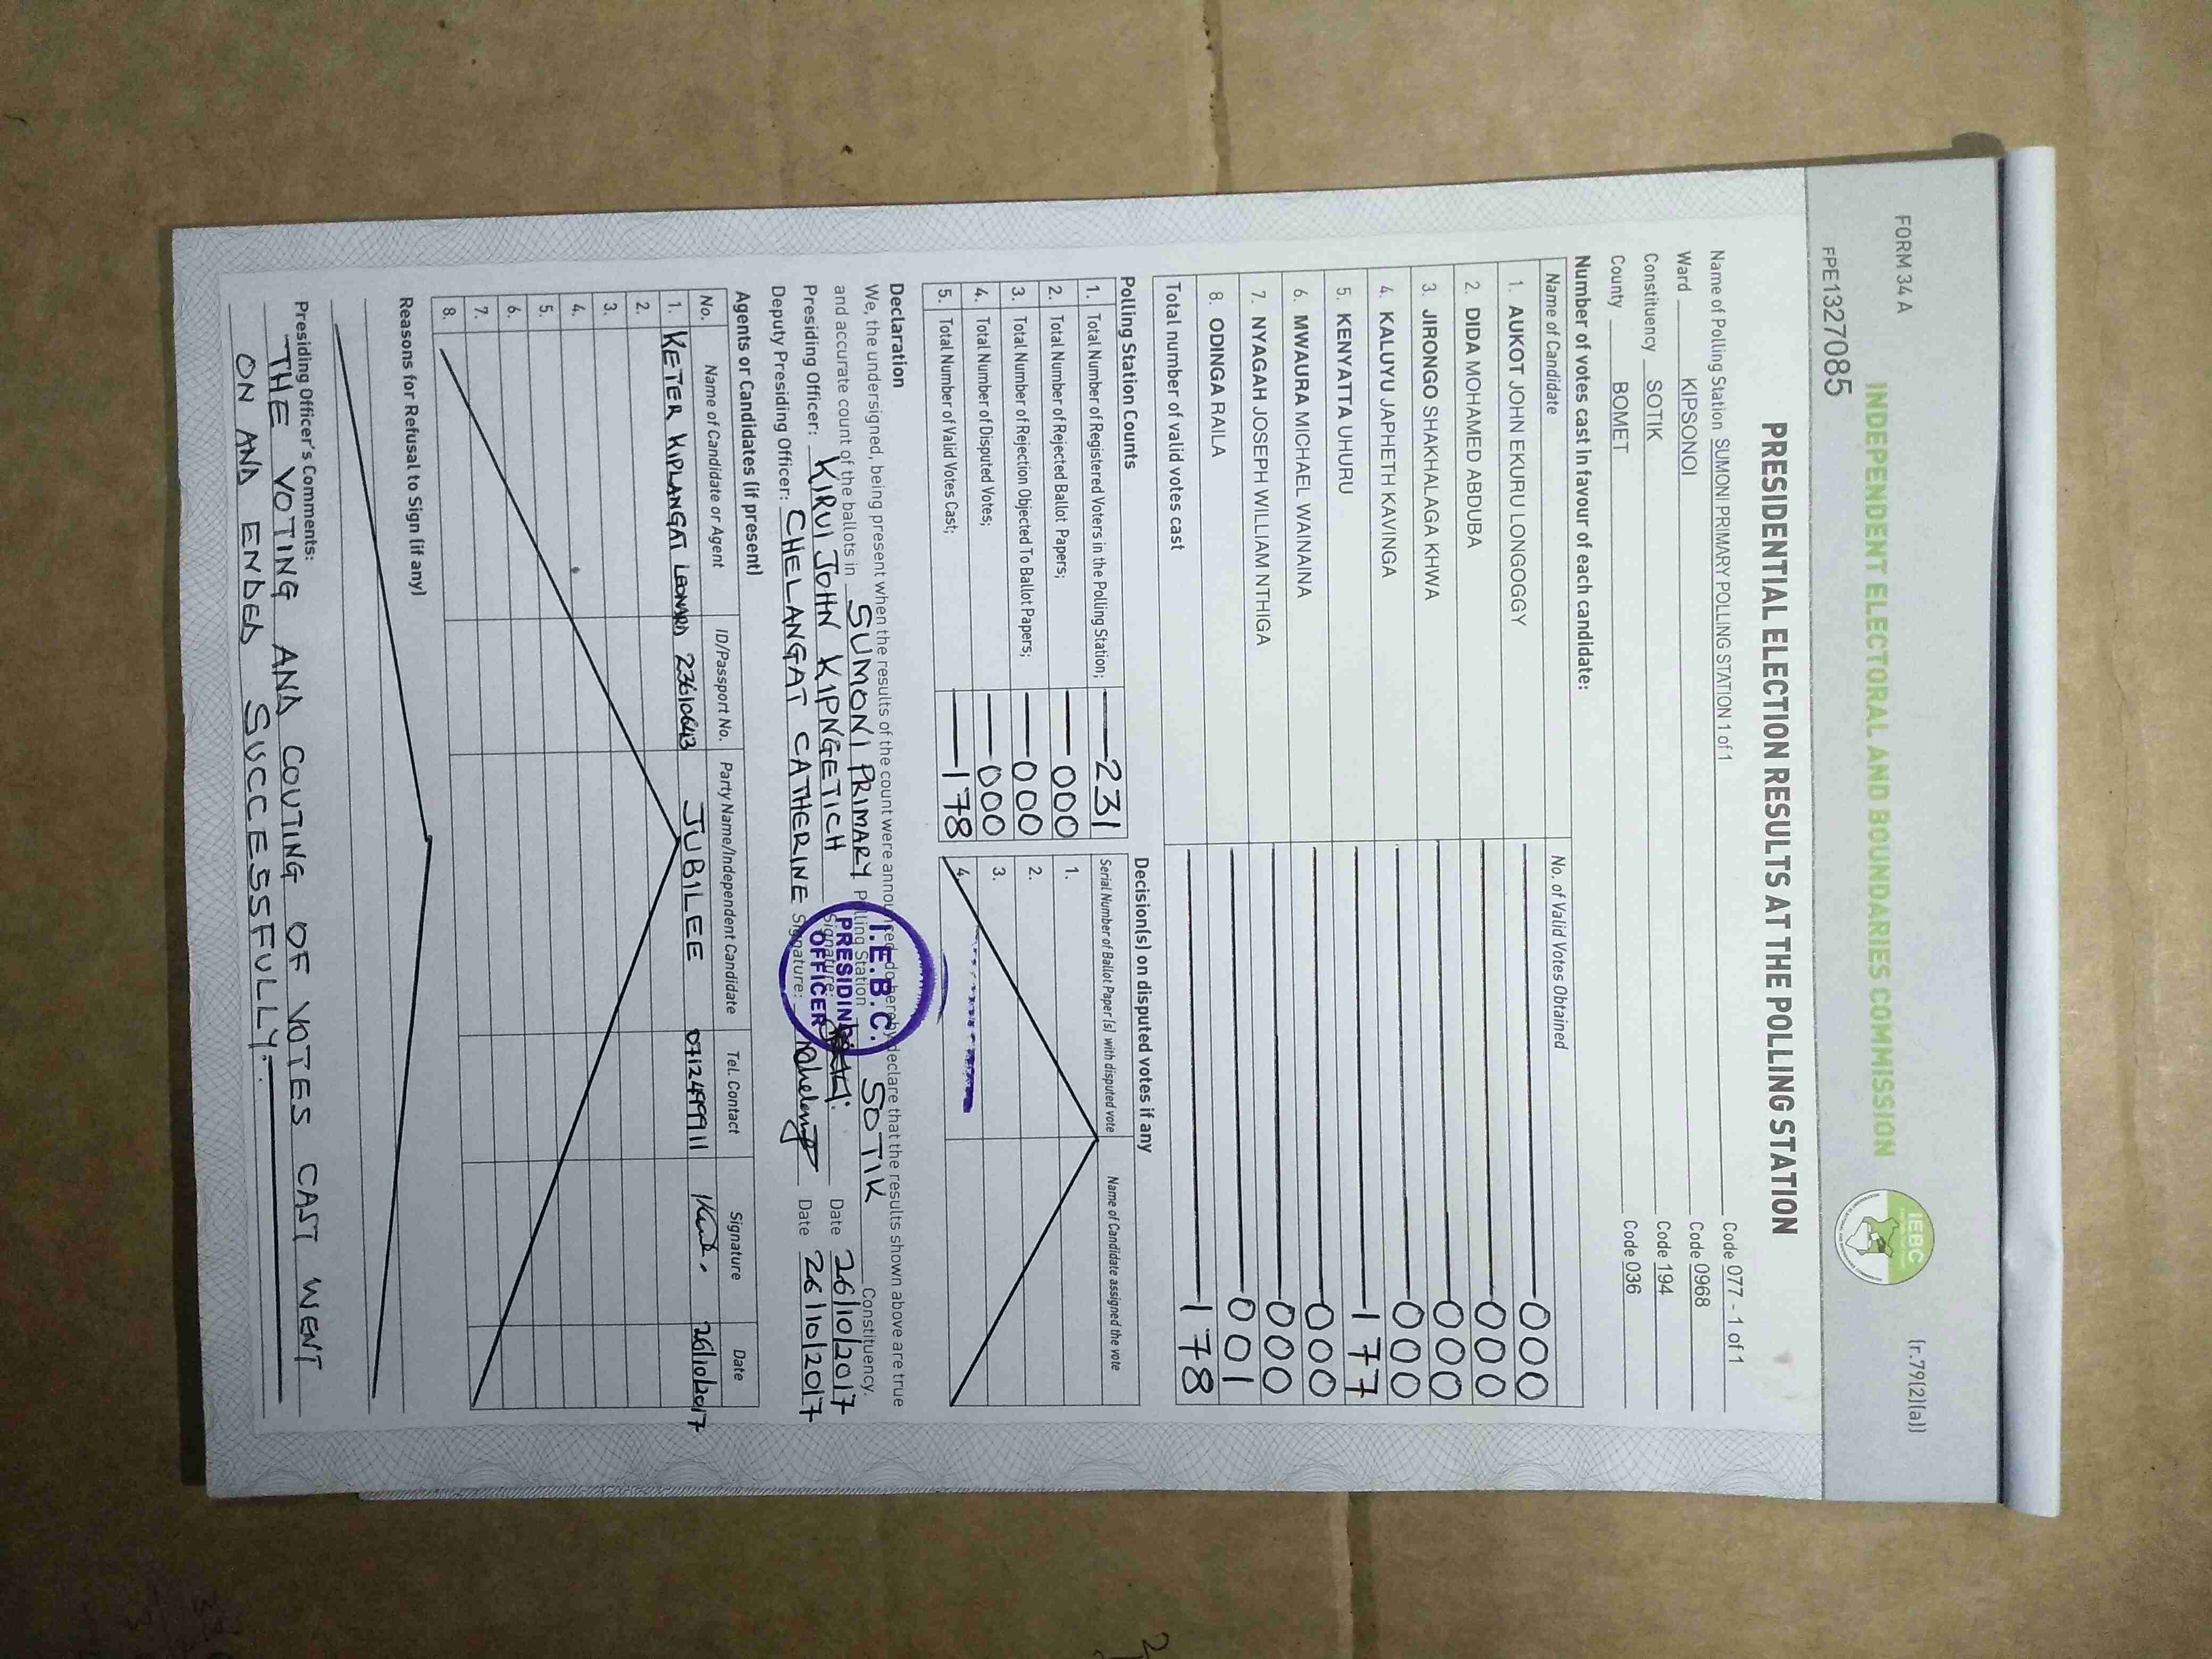 FORM 34 A
(r.79(2)(a))
INDEPENDENT ELECTORAL AND BOUNDARIES COMMISSION
IEBC
FPE1327085
PRESIDENTIAL ELECTION RESULTS AT THE POLLING STATION
Name of Polling Station SUMONI PRIMARY POLLING STATION 1 of 1 Code 077 - 1 of 1
Ward KIPSONOI Code 0968
Constituency SOTIK Code 194
County BOMET Code 036
Number of votes cast in favour of each candidate:
Name of Candidate No. of Valid Votes Obtained
1. AUKOT JOHN EKURU LONGOGGY 000
2. DIDA MOHAMED ABDUBA 000
3. JIRONGO SHAKHALAGA KHWA 000
4. KALUYU JAPHETH KAVINGA 000
5. KENYATTA UHURU 177
6. MWAURA MICHAEL WAINAINA 000
7. NYAGAH JOSEPH WILLIAM NTHIGA 000
8. ODINGA RAILA 001
Total number of valid votes cast 178
Polling Station Counts
1. Total Number of Registered Voters in the Polling Station; 231
2. Total Number of Rejected Ballot Papers; 000
3. Total Number of Rejection Objected To Ballot Papers; 000
4. Total Number of Disputed Votes; 000
5. Total Number of Valid Votes Cast; 178
Decision(s) on disputed votes if any
Serial Number of Ballot Paper(s) with disputed vote Name of Candidate assigned the vote
1.
2.
3.
4.
Declaration
We, the undersigned, being present when the results of the count were announced, do hereby declare that the results shown above are true
and accurate count of the ballots in SUMONI PRIMARY Polling Station SOTIK Constituency.
Presiding Officer: KIRUI JOHN KIPNGETICH Signature: Date 26/10/2017
Deputy Presiding Officer: CHELANGAT CATHERINE Signature: Date 26/10/2017
I.E.B.C.
PRESIDING
OFFICER
Agents or Candidates (if present)
No. Name of Candidate or Agent ID/Passport No. Party Name/Independent Candidate Tel. Contact Signature Date
1. KETER KIPLANGAT LEONARD 23610643 JUBILEE 0712499911 26/10/2017
2.
3.
4.
5.
6.
7.
8.
Reasons for Refusal to Sign (if any)
Presiding Officer's Comments:
THE VOTING AND COUTING OF VOTES CAST WENT
ON AND ENDED SUCCESSFULLY.